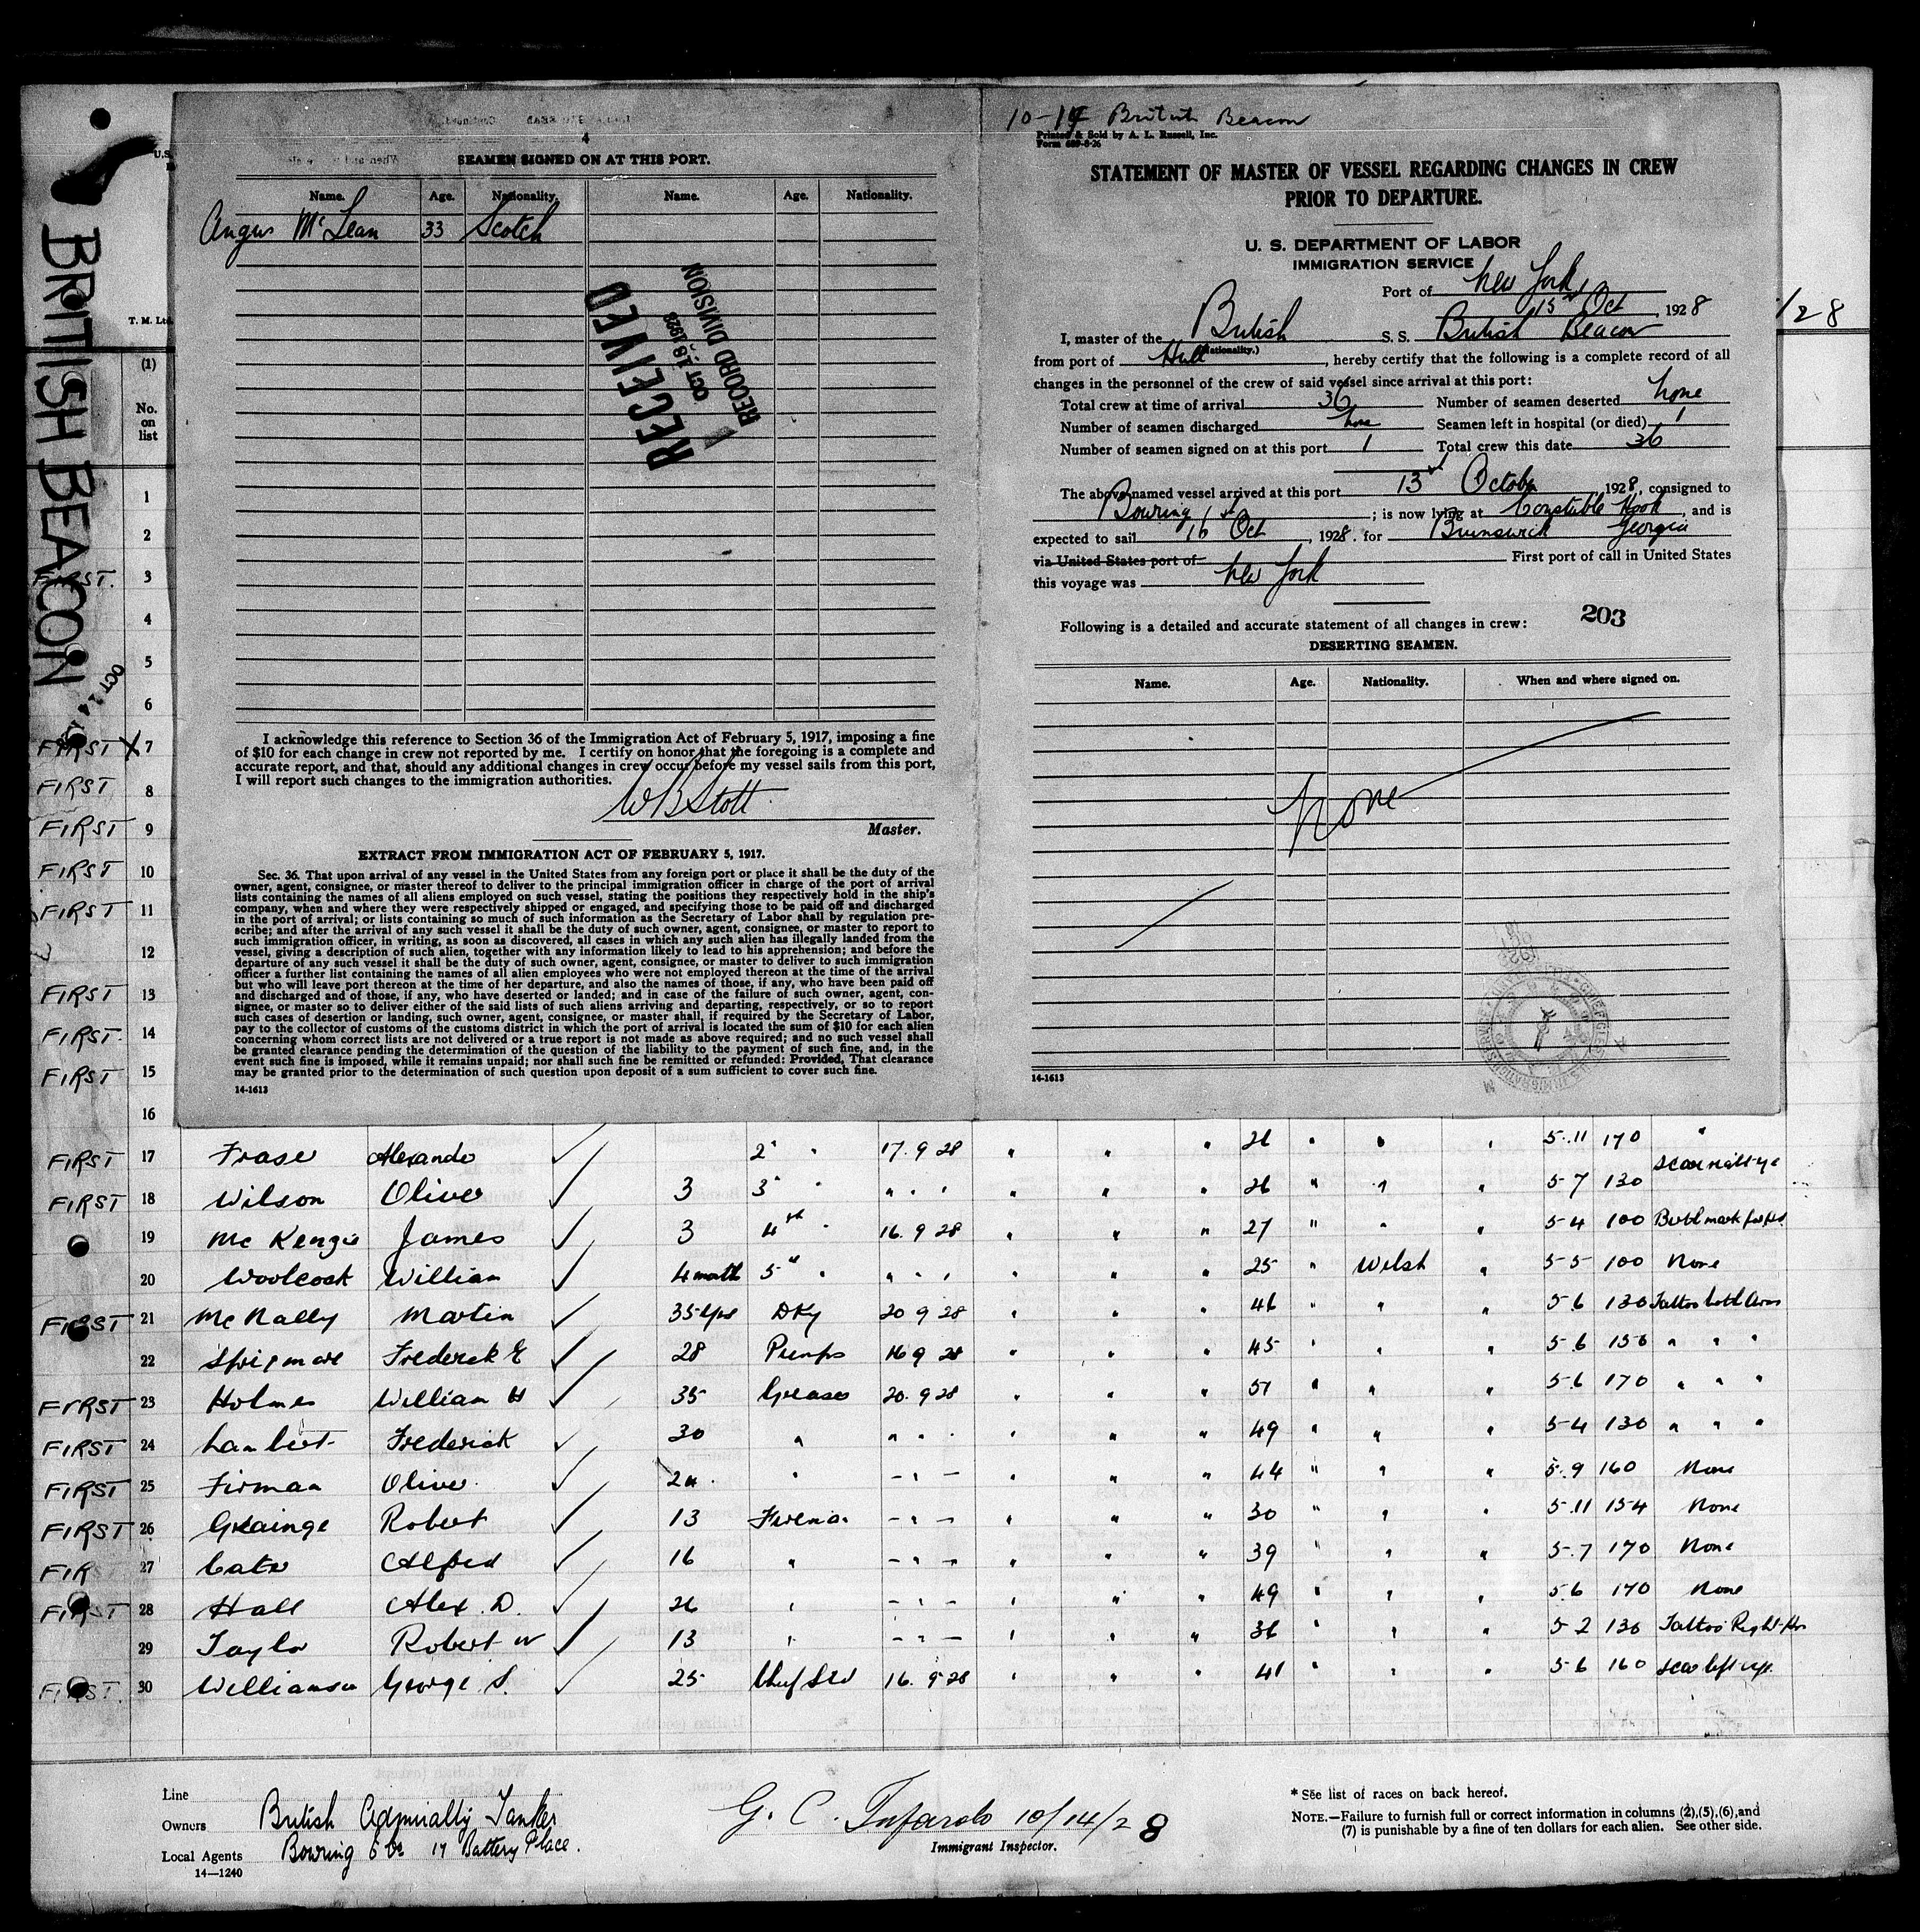 BRITISH BEACON
OCT 14
4
SEAMEN SIGNED ON AT THIS PORT.
Name. Age. Nationality. Name. Age. Nationality.
Angus McLean 33 Scotch
RECEIVED
OCT 18 1928
RECORD DIVISION
I acknowledge this reference to Section 36 of the Immigration Act of February 5, 1917, imposing a fine
of $10 for each change in crew not reported by me. I certify on honor that the foregoing is a complete and
accurate report, and that, should any additional changes in crew occur before my vessel sails from this port,
I will report such changes to the immigration authorities.
WB Stott
Master.
EXTRACT FROM IMMIGRATION ACT OF FEBRUARY 5, 1917.
Sec. 36. That upon arrival of any vessel in the United States from any foreign port or place it shall be the duty of the
owner, agent, consignee, or master thereof to deliver to the principal immigration officer in charge of the port of arrival
lists containing the names of all aliens employed on such vessel, stating the positions they respectively hold in the ship's
company, when and where they were respectively shipped or engaged, and specifying those to be paid off and discharged
in the port of arrival; or lists containing so much of such information as the Secretary of Labor shall by regulation pre-
scribe; and after the arrival of any such vessel it shall be the duty of such owner, agent, consignee, or master to report to
such immigration officer, in writing, as soon as discovered, all cases in which any such alien has illegally landed from the
vessel, giving a description of such alien, together with any information likely to lead to his apprehension; and before the
departure of any such vessel it shall be the duty of such owner, agent, consignee, or master to deliver to such immigration
officer a further list containing the names of all alien employees who were not employed thereon at the time of the arrival
but who will leave port thereon at the time of her departure, and also the names of those, if any, who have been paid off
and discharged and of those, if any, who have deserted or landed; and in case of the failure of such owner, agent, con-
signee, or master so to deliver either of the said lists of such aliens arriving and departing, respectively, or so to report
such cases of desertion or landing, such owner, agent, consignee, or master shall, if required by the Secretary of Labor,
pay to the collector of customs of the customs district in which the port of arrival is located the sum of $10 for each alien
concerning whom correct lists are not delivered or a true report is not made as above required; and no such vessel shall
be granted clearance pending the determination of the question of the liability to the payment of such fine, and, in the
event such fine is imposed, while it remains unpaid; nor shall such fine be remitted or refunded: Provided, That clearance
may be granted prior to the determination of such question upon deposit of a sum sufficient to cover such fine.
14-1613
10-14 British Beacon
Printed & Sold by A. L. Russell, Inc.
Form 689-8-26
STATEMENT OF MASTER OF VESSEL REGARDING CHANGES IN CREW
PRIOR TO DEPARTURE.
U. S. DEPARTMENT OF LABOR
IMMIGRATION SERVICE
Port of New York
15th Oct, 1928
I, master of the British S. S. British Beacon
(Nationality.)
from port of Hull, hereby certify that the following is a complete record of all
changes in the personnel of the crew of said vessel since arrival at this port:
Total crew at time of arrival 36 Number of seamen deserted none
Number of seamen discharged none Seamen left in hospital (or died) 1
Number of seamen signed on at this port 1 Total crew this date 36
The above-named vessel arrived at this port 13th October 1928, consigned to
Bowring; is now lying at Constable Hook, and is
expected to sail 16th Oct, 1928. for Brunswick Georgia
via United States port of First port of call in United States
this voyage was New York
203
Following is a detailed and accurate statement of all changes in crew:
DESERTING SEAMEN.
Name. Age. Nationality. When and where signed on.
None
14-1613
/28
U.S.
T. M. Ltd.
(1)
No.
on
list
1
2
FIRST. 3
4
5
6
FIRST X 7
FIRST 8
FIRST 9
FIRST 10
FIRST 11
12
FIRST 13
FIRST 14
FIRST 15
16
FIRST 17 Fraser Alexander ✓ 2" " 17.9 28 " " " 26 " " " 5.11 170 "
FIRST 18 Wilson Oliver ✓ 3 3" " " " " " " " 26 " " " 5-7 130
19 McKenzie James ✓ 3 4th " 16.9 28 " " " 27 " " " 5-4 100 Birth mark
20 Woolcock William ✓ 4 month 5" " " " " " " " 25 " Welsh " 5-5 100 None
FIRST 21 McNally Martin ✓ 35 yrs Dky 20 9 28 " " " 46 " " " 5.6 130 Tattoo both Arms
22 Frederick E ✓ 28 16 9 28 " " " 45 " " " 5.6 150 " " "
FIRST 23 Holmes William H ✓ 35 Greaser 20.9 28 " " " 51 " " " 5.6 170 " " "
FIRST 24 Lambert Frederick ✓ 30 " " " " " " " 49 " " " 5-4 130 " " "
FIRST 25 Firman Oliver ✓ 24 " - " - " " " 44 " " " 5.9 160 None
FIRST 26 Grainge Robert ✓ 13 Fireman - " - " " " 30 " " " 5.11 154 None
FIR 27 Alfred ✓ 16 " - " - " " " 39 " " " 5.7 170 None
FIRST 28 Hall Alex. D. ✓ 26 " - " - " " " 49 " " " 5.6 170 None
29 Taylor Robert W ✓ 13 " - " - " " " 36 " " " 5-2 130 Tattoo Right
FIRST. 30 Williamson George S. ✓ 25 Chief Std 16.9 28 " " " 41 " " " 5.6 160 Scar left
Line
Owners British Admiralty Tanker
Local Agents Bowring & Co 17 Battery Place.
14—1240
G. C. 10/14/28
Immigrant Inspector.
* See list of races on back hereof.
NOTE.—Failure to furnish full or correct information in columns (2),(5),(6),and
(7) is punishable by a fine of ten dollars for each alien. See other side.